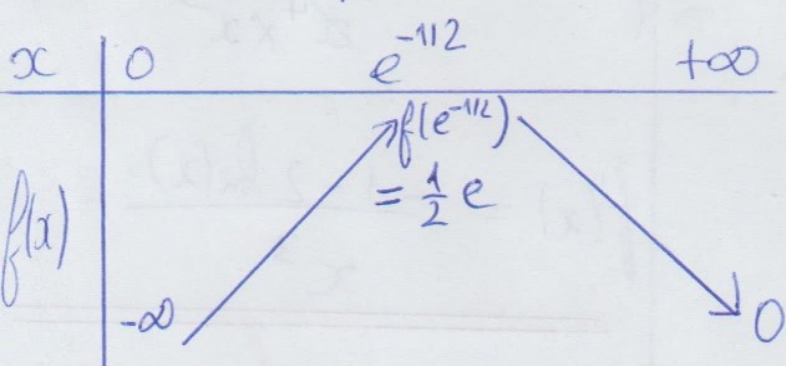 x 0 e^{-1/2} +∞
f(x) f(e^{-1/2})
= \frac{1}{2} e
-∞ 0